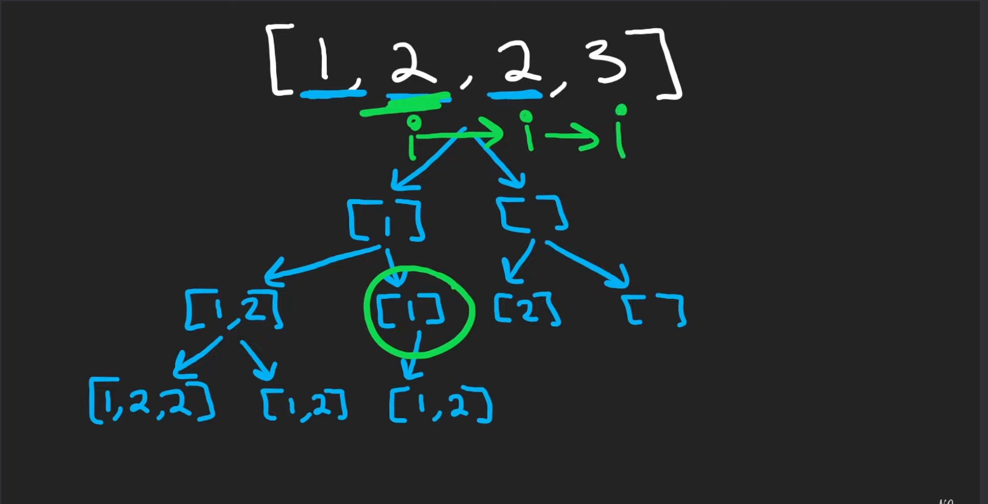 [1, 2, 2, 3]
i i i
[1] []
[1,2] [1] [2] []
[1,2,2] [1,2] [1,2]